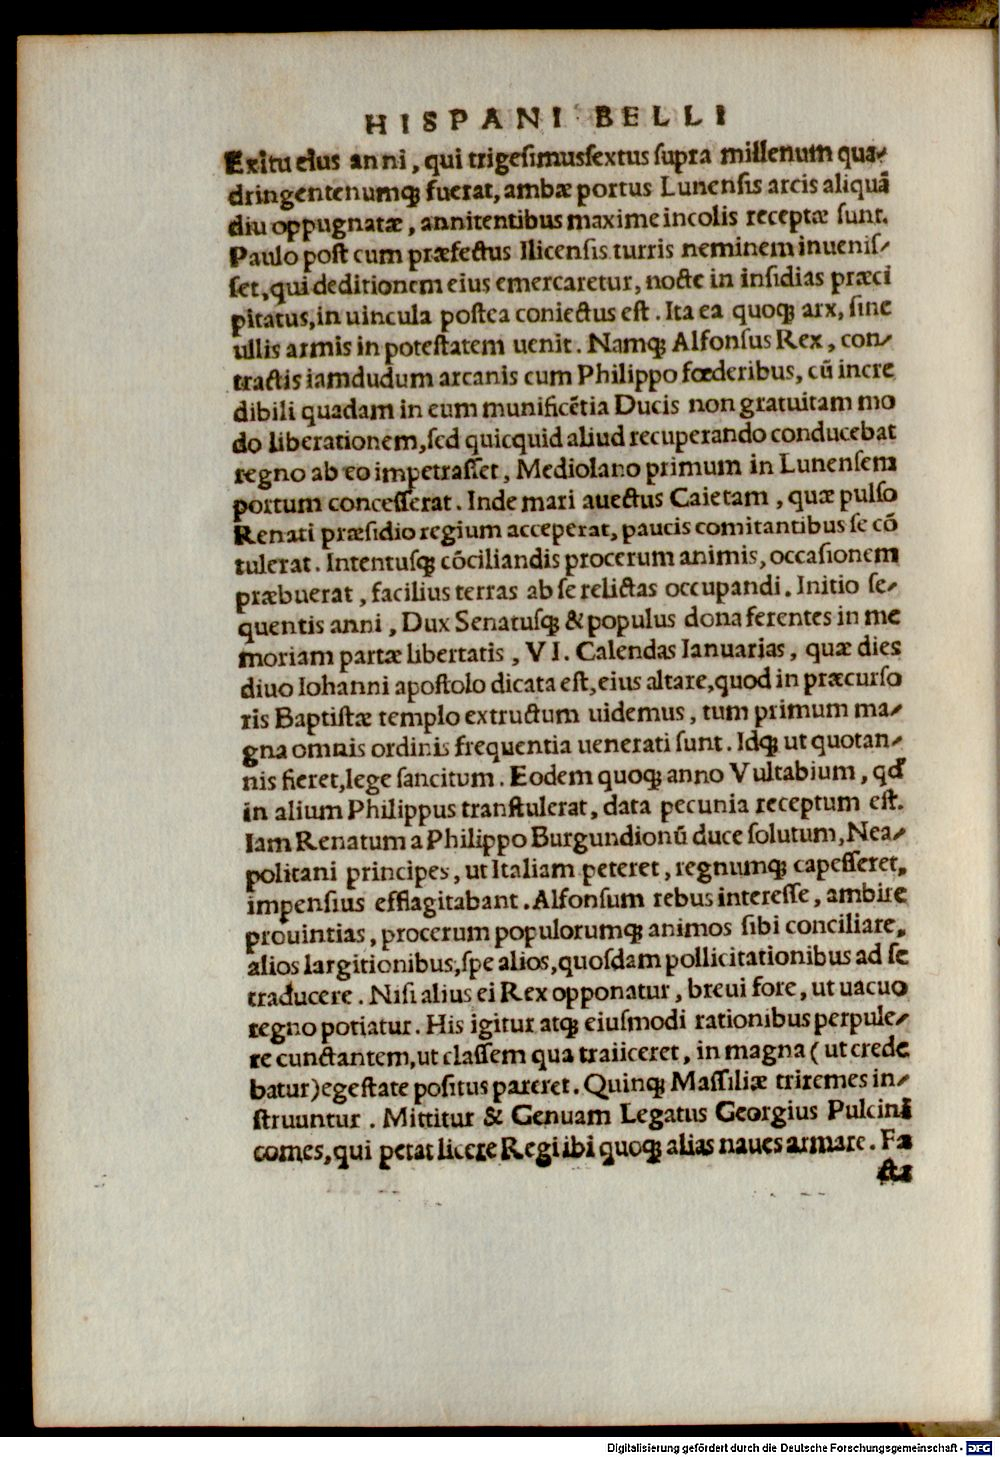 HISPANI BELLI
Exitu eius anni, qui trigesimussextus supra millenum qua-
dringentenumq; fuerat, ambæ portus Lunensis arcis aliquã
diu oppugnatæ, annitentibus maxime incolis receptæ sunt.
Paulo post cum præfectus Ilicensis turris neminem inuenis-
set, qui deditionem eius emercaretur, nocte in insidias præci
pitatus, in uincula postea coniectus est. Ita ea quoq; arx, sine
ullis armis in potestatem uenit. Namq; Alfonsus Rex, con-
tractis iamdudum arcanis cum Philippo fœderibus, cũ incre
dibili quadam in eum munificẽtia Ducis non gratuitam mo
do liberationem, sed quicquid aliud recuperando conducebat
regno ab eo impetrasset, Mediolano primum in Lunensem
portum concesserat. Inde mari auectus Caietam, quæ pulso
Renati præsidio regium acceperat, paucis comitantibus se cõ
tulerat. Intentusq; cõciliandis procerum animis, occasionem
præbuerat, facilius terras ab se relictas occupandi. Initio se-
quentis anni, Dux Senatusq; & populus dona ferentes in me
moriam partæ libertatis, VI. Calendas Ianuarias, quæ dies
diuo Iohanni apostolo dicata est, eius altare, quod in præcurso
ris Baptistæ templo extructum uidemus, tum primum ma-
gna omnis ordinis frequentia uenerati sunt. Idq; ut quotan-
nis fieret, lege sancitum. Eodem quoq; anno Vultabium, qđ
in alium Philippus transtulerat, data pecunia receptum est.
Iam Renatum a Philippo Burgundionũ duce solutum, Nea-
politani principes, ut Italiam peteret, regnumq; capesseret,
impensius efflagitabant. Alfonsum rebus interesse, ambire
prouintias, procerum populorumq; animos sibi conciliare,
alios largitionibus, spe alios, quosdam pollicitationibus ad se
traducere. Nisi alius ei Rex opponatur, breui fore, ut uacuo
regno potiatur. His igitur atq; eiusmodi rationibus perpule-
re cunctantem, ut classem qua traiiceret, in magna (ut crede
batur) egestate positus pareret. Quinq; Massiliæ triremes in-
struuntur. Mittitur & Genuam Legatus Georgius Pulcini
comes, qui petat licere Regi ibi quoq; alias naues armare. Fa
cta
Digitalisierung gefördert durch die Deutsche Forschungsgemeinschaft - DFG